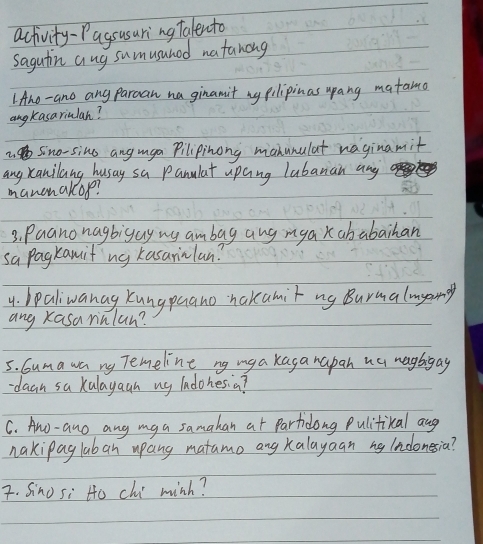 activity-Pagsusuri ng Talento
sagutin ang sumusunod na tanong
1. Ano-ano ang Paraan na ginamit ng pilipinas upang matamo
ang kasarinlan?
2. Sino-sino ang mga Pilipinong manunulat na ginamit
ang kanilang husay sa Panulat upang labanan ang
mananakop?
3. Paano nagbigay ng ambag ang mga kababaihan
sa Pagkamit ng kasarinlan?
4. Ipaliwanag kung paano nakamit ng Burma (myanmar)
ang kasarinlan?
5. Gumawa ng Temeline ng mga kaganapan na nagbigay
-daan sa kalayaan ng Indonesia?
6. Ano-ano ang mga samahan at Partidong Pulitikal ang
nakipaglaban upang matamo ang kalayaan ng Indonesia?
7. Sino si Ho chi minh?